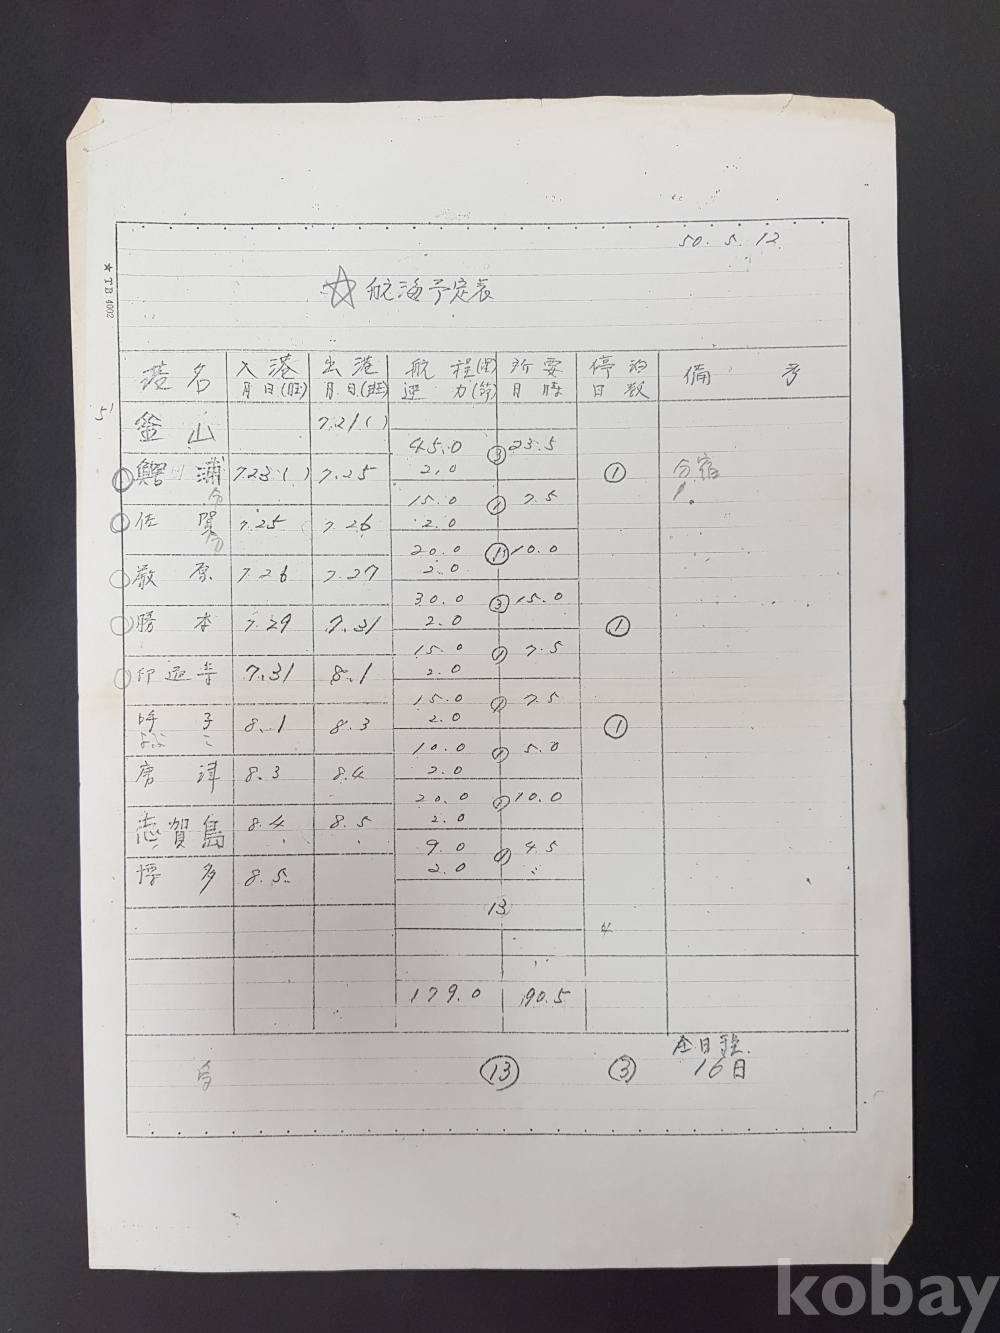 50. 5. 12
★ TB 4002
☆ 航海予定表
港名 入港 月日(旺) 出港 月.日.(旺) 航程(浬) 速力(節) 所要 日時 停泊 日数 備考
5'
釜山 7.21( )
45.0 ③ 23.5
2.0
① 鰐浦 7.23( ) 7.25 ① 分宿
分 1.
15.0 ① 7.5
○ 佐賀 7.25 7.26 2.0
分
20.0 ① 10.0
2.0
○ 厳原 7.26 7.27
30.0 ③ 15.0
○ 勝本 7.29 7.31 2.0 ①
15.0 ① 7.5
○ 印通寺 7.31 8.1 2.0
15.0 ① 7.5
呼子 8.1 8.3 2.0 ①
よぶこ
10.0 ① 5.0
唐津 8.3 8.4 2.0
20.0 ① 10.0
志賀島 8.4 8.5 2.0
9.0 ① 4.5
博多 8.5 2.0
13
4
179.0 90.5
全日程
⑬ ③ 16日
kobay